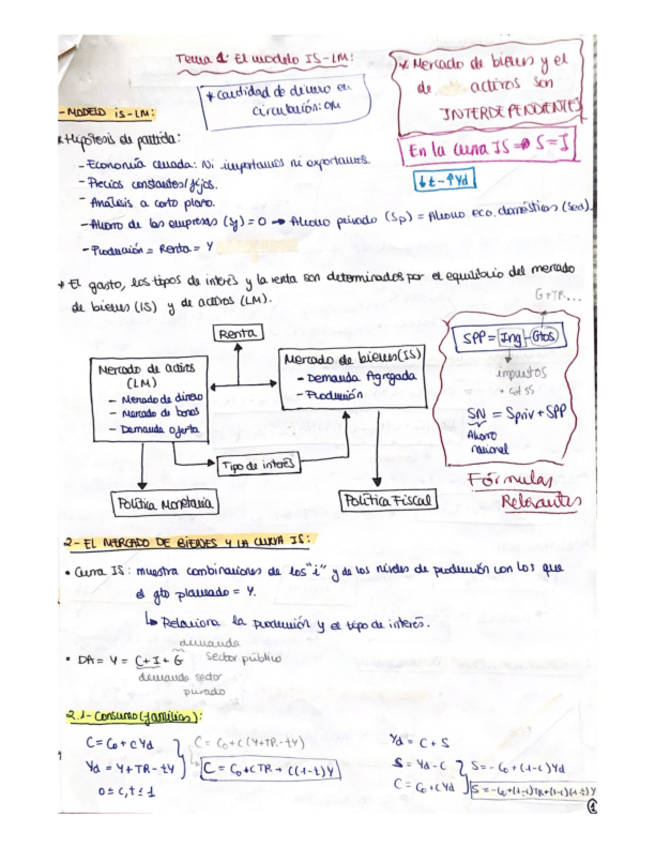 Tema 1: El modelo IS-LM:
* Mercado de bienes y el
de activos son
INTERDEPENDIENTES
* cantidad de dinero en
circulación: OM
- MODELO IS-LM:
* Hipótesis de partida:
En la curva IS → S = I
- Economía cerrada: Ni importamos ni exportamos.
- Precios constantes/fijos.
↓t - ↑Yd
- Análisis a corto plazo.
- Ahorro de las empresas (Sy) = 0 → Ahorro privado (Sp) = Ahorro eco. domésticas (Sed).
- Producción = Renta = Y
* El gasto, los tipos de interés y la renta son determinados por el equilibrio del mercado
de bienes (IS) y de activos (LM).
G+TR...
Renta
SPP = Ing - Gtos
impuestos
+ cot SS
SN = Spriv + SPP
Ahorro
nacional
Fórmulas
Relevantes
Mercado de activos
(LM)
- Mercado de dinero
- Mercado de bonos
- Demanda oferta
Mercado de bienes (IS)
- Demanda Agregada
- Producción
Tipo de interés
Política Monetaria
Política Fiscal
2- EL MERCADO DE BIENES Y LA CURVA IS:
• Curva IS: muestra combinaciones de los "i" y de los niveles de producción con los que
el gto planeado = Y.
↳ Relaciona la producción y el tipo de interés.
demanda
• DA = Y = C + I + G sector público
demanda sector
privado
2.1- Consumo (familias):
C = C₀ + cYd
Yd = Y + TR - tY
0 ≤ c, t ≤ 1
C = C₀ + c(Y + TR - tY)
C = C₀ + cTR + c(1-t)Y
Yd = C + S
S = Yd - C
C = C₀ + cYd
S = -C₀ + (1-c)Yd
S = -C₀ + (1-c)TR + (1-c)(1-t)Y
1